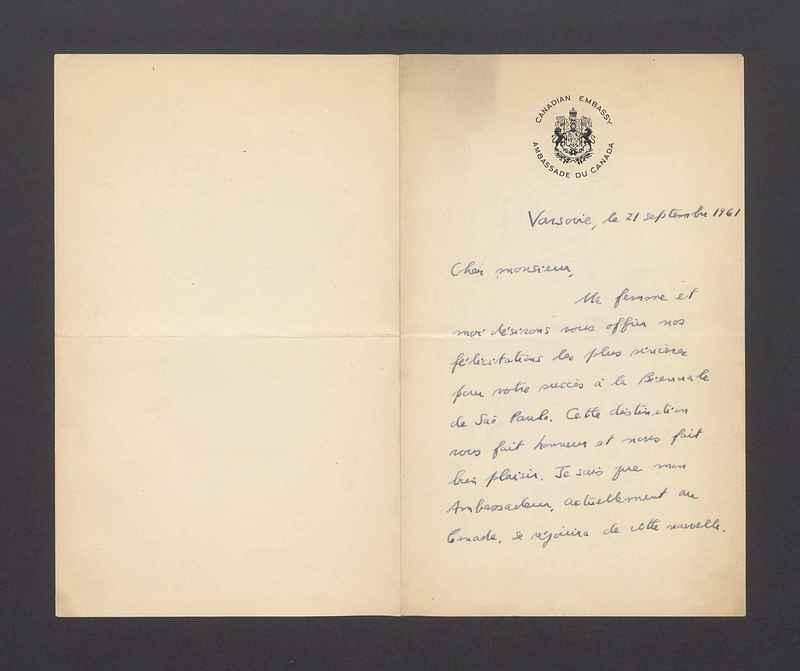 CANADIAN EMBASSY
AMBASSADE DU CANADA
Varsovie, le 21 septembre 1961
Cher monsieur,
Ma femme et
moi désirons vous offrir nos
félicitations les plus sincères
pour votre succès à la Biennale
de Saõ Paulo. Cette distinction
vous fait honneur et nous fait
bien plaisir. Je sais que mon
Ambassadeur, actuellement au
Canada, se réjouira de cette nouvelle.